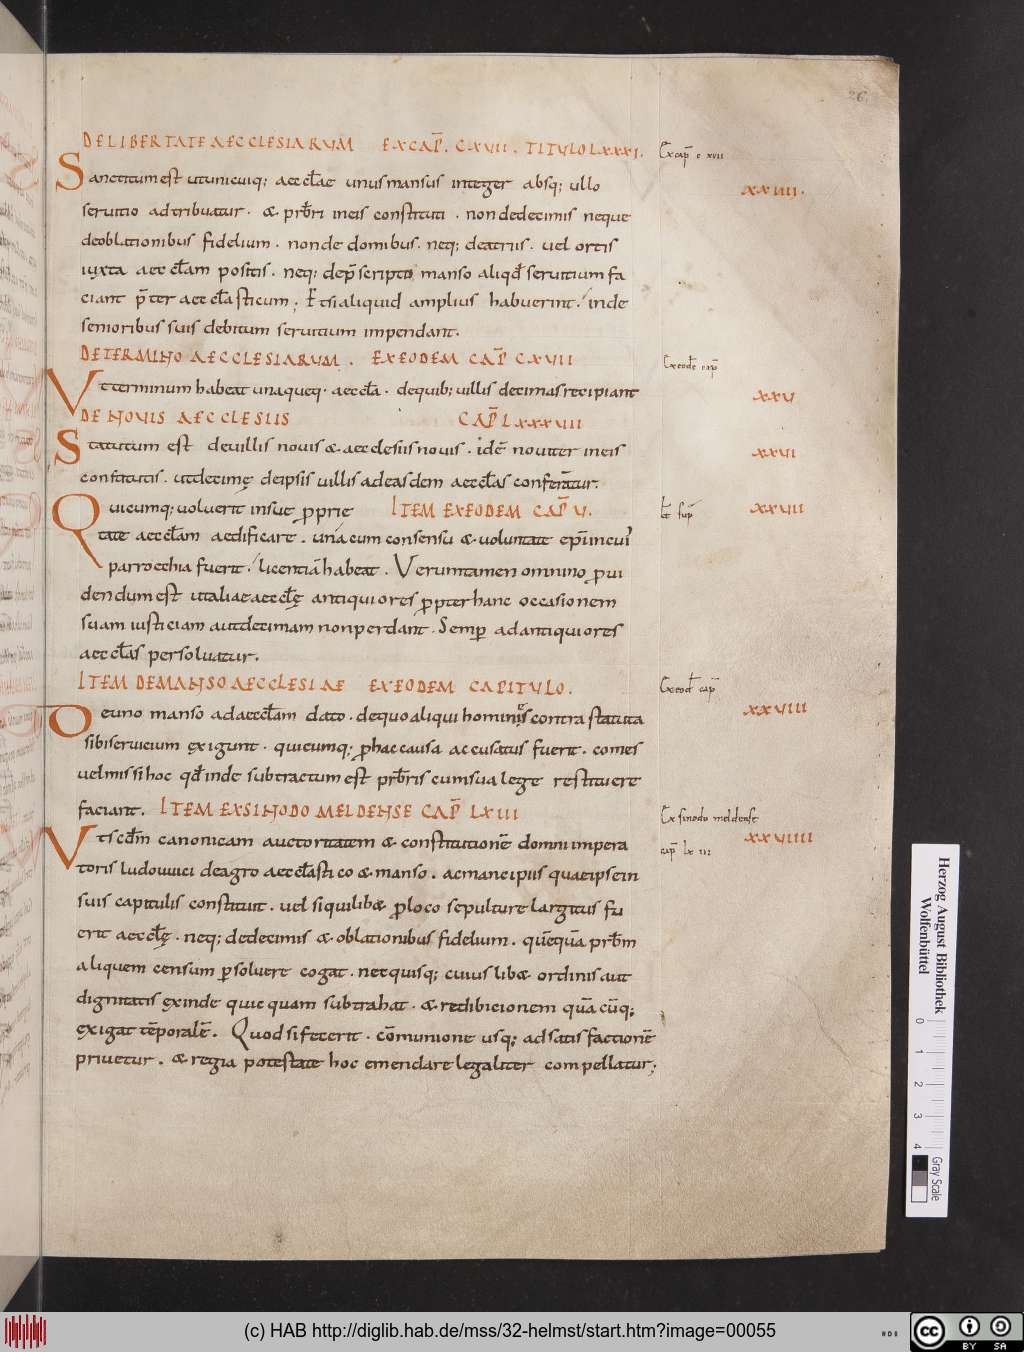 26.
DE LIBERTATE AECCLESIARVM EX CAP̄. CXVII. TITVLO LXXXI.
Ex cap̄ c xvii
XXIIII.
Sanctitum est ut unicuiq; aeccłae unus mansus integer absq; ullo
seruitio adtribuatur. & prb̄ri in eis constituti. non de decimis neque
de oblationibus fidelium. non de domibus. neq; de atriis. uel ortis
iuxta aeccłam positis. neq; de p̄scripto manso aliqd̄ seruitium fa
ciant p̄ter aeccłasticum; Et si aliquid amplius habuerint. inde
senioribus suis debitum seruitium impendant.
DE TERMINO AECCLESIARVM. EX EODEM CAP̄ CXVII
Ex eodē cap̄
Vt terminum habeat unaqueq. aeccła. de quib; uillis decimas recipiant
XXV
DE NOVIS AECCLESIIS CAP̄ LXXXVII
Statutum est de uillis nouis & aecclesiis nouis. idē nouiter in eis
XXVI
constitutis. ut decimę de ipsis uillis ad easdem aeccłas conferantur.
Quicumq; uoluerit in sue p̄prie ITEM EX EODEM CAP̄ V.
XXVII
tate aeccłam aedificare. una cum consensu & uoluntate ep̄i in cui'
parrochia fuerit. licentiā habeat. Veruntamen omnino p̄ui
dendum est ut aliae aeccłę antiquiores p̄pter hanc occasionem
suam iusticiam aut decimam non perdant. Semp̄ ad antiquiores
aeccłas persoluatur.
ITEM DE MANSO AECCLESIAE EX EODEM CAPITVLO.
Ex eod̄ cap̄
XXVIII
De uno manso ad aeccłam dato. de quo aliqui homines contra statuta
sibi seruicium exigunt. quicumq; p̄ hac causa accusatus fuerit. comes
uel missi hoc qd̄ inde subtractum est prb̄ris cum sua lege restituere
faciant. ITEM EX SINODO MELDENSE CAP̄ LXIII
Ex sinodo meldense
cap̄ lx iii
XXVIIII
Vt scd̄m canonicam auctoritatem & constitutionē domni impera
toris ludouuici de agro aeccłastico & manso. ac mancipiis quae ipse in
suis capitulis constituit. uel si quilib& p̄ loco sepulture largitus fu
erit aeccłę. neq; de decimis & oblationibus fidelium. quēquā prb̄m
aliquem censum p̄soluere cogat. nec quisq; cuiuslib& ordinis aut
dignitatis exinde quicquam subtrahat. & redibicionem quā cūq;
exigat tēporalē. Quod si fecerit. cōmunione usq; ad satisfactionē
priuetur. & regia potestate hoc emendare legaliter compellatur;
Herzog August Bibliothek
Wolfenbüttel
0 1 2 3 4
Gray Scale
(c) HAB http://diglib.hab.de/mss/32-helmst/start.htm?image=00055
cc BY SA